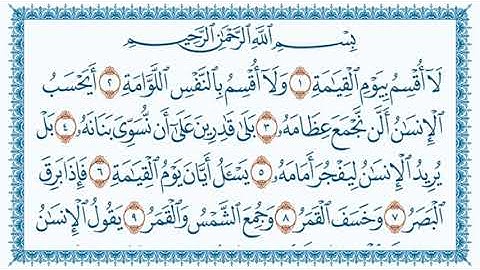 بِسْمِ ٱللَّهِ ٱلرَّحْمَٰنِ ٱلرَّحِيمِ
لَآ أُقْسِمُ بِيَوْمِ ٱلْقِيَٰمَةِ ١ وَلَآ أُقْسِمُ بِٱلنَّفْسِ ٱللَّوَّامَةِ ٢ أَيَحْسَبُ
ٱلْإِنسَٰنُ أَلَّن نَّجْمَعَ عِظَامَهُۥ ٣ بَلَىٰ قَٰدِرِينَ عَلَىٰٓ أَن نُّسَوِّىَ بَنَانَهُۥ ٤ بَلْ
يُرِيدُ ٱلْإِنسَٰنُ لِيَفْجُرَ أَمَامَهُۥ ٥ يَسْـَٔلُ أَيَّانَ يَوْمُ ٱلْقِيَٰمَةِ ٦ فَإِذَا بَرِقَ
ٱلْبَصَرُ ٧ وَخَسَفَ ٱلْقَمَرُ ٨ وَجُمِعَ ٱلشَّمْسُ وَٱلْقَمَرُ ٩ يَقُولُ ٱلْإِنسَٰنُ